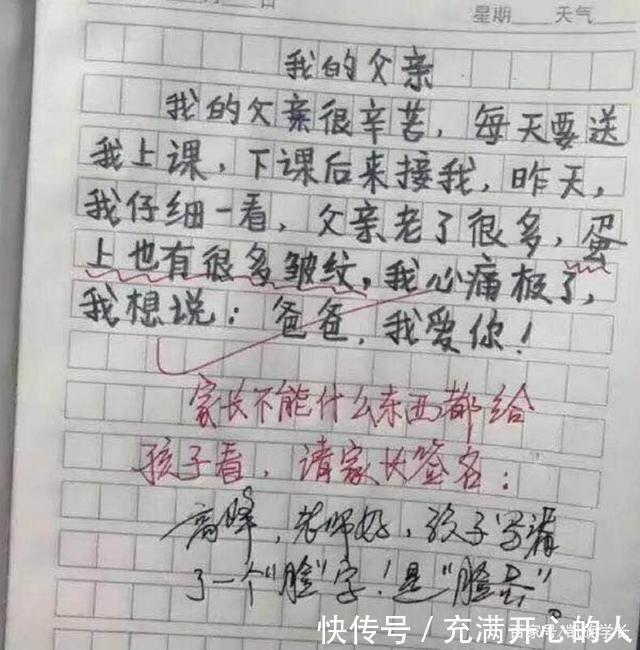 日 星期 天气
我的父亲
我的父亲很辛苦，每天要送
我上课，下课后来接我，昨天，
我仔细一看，父亲老了很多，蛋
上也有很多皱纹，我心痛极了，
我想说：爸爸，我爱你！
家长不能什么东西都给
孩子看，请家长签名：
高峰，老师好，孩子写漏
了一个"脸"字！是"脸蛋"。
快传号／充满开心的人